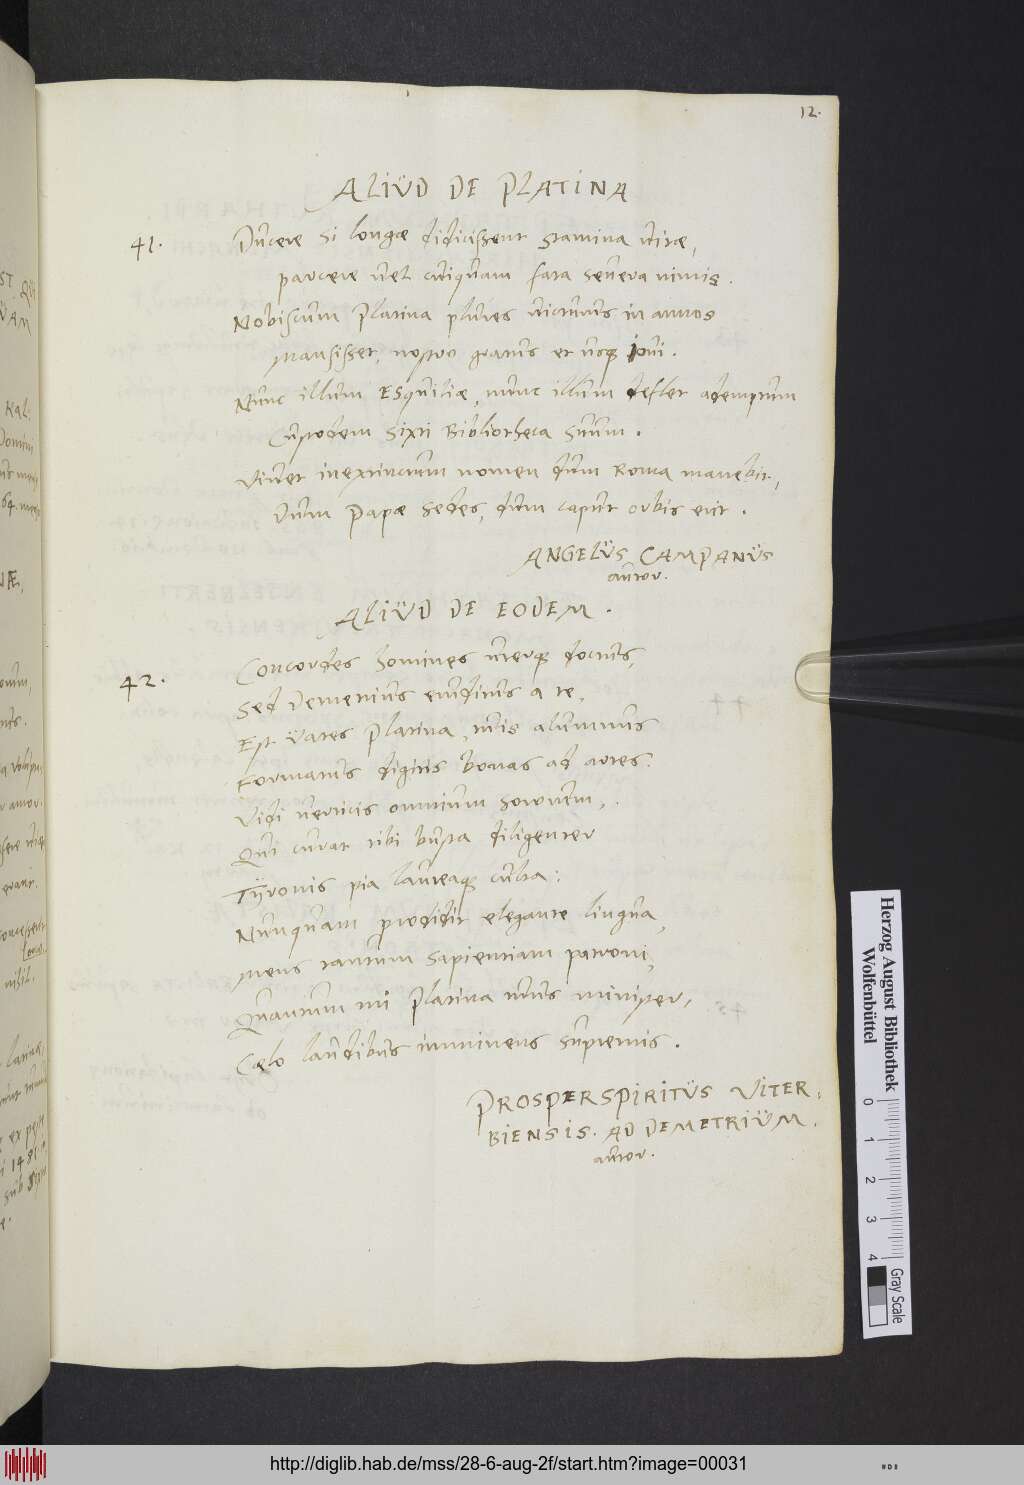 12.
ALIUD DE PLATINA
41. Ducere si longae didicissent stamina vitae,
parcere vel cuiquam fata severa nimis.
Nobiscum Platina plures victurus in annos
Mansisset, nostro gratus et usq Iovi.
Nunc illum ESquiliae, nunc illum deflet ademptum
Custodem Sixti Bibliotheca suum.
Vivet inextinctum nomen dum Roma manebit,
Dum Papae sedes, dum caput orbis erit.
ANGELÜS CAMPANÜS
autor.
ALIÜD DE EODEM.
42. Concordes homines uterq doctus,
Sed Demetrius eruditus a te,
Est Vates Platina, tuis alumnus
Formatus digitis bonas ad artes.
Vidi omnium
Qui curat tibi busta diligenter
Tÿronis pia laureaq culta:
Nunquam prodidit elegante lingua,
Mens tantum sapientiam patroni,
Quantum mi Platina tuus minister,
Caelo laudibus imminens supremis.
PROSPERSPIRITÜS VITER:
BIENSIS. AD DEMETRIÜM.
autor.
Herzog August Bibliothek
Wolfenbüttel
0 1 2 3 4
Gray Scale
http://diglib.hab.de/mss/28-6-aug-2f/start.htm?image=00031